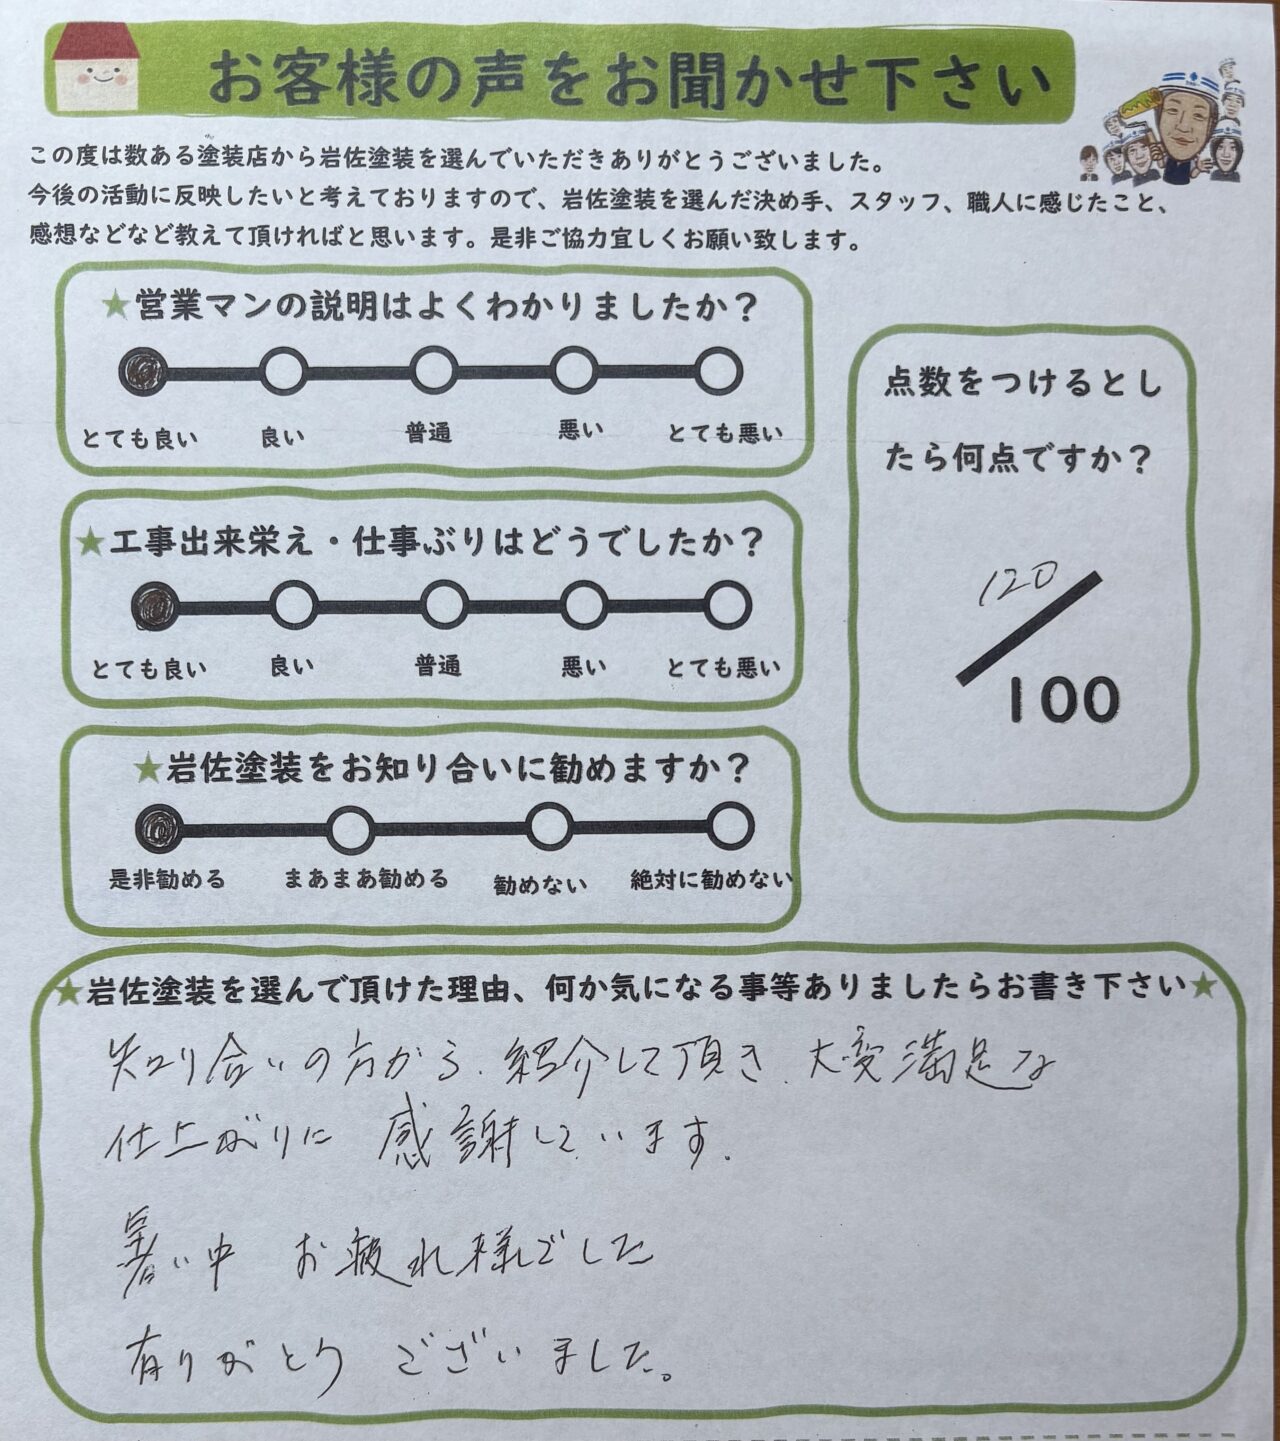 お客様の声をお聞かせ下さい
この度は数ある塗装店から岩佐塗装を選んでいただきありがとうございました。
今後の活動に反映したいと考えておりますので、岩佐塗装を選んだ決め手、スタッフ、職人に感じたこと、
感想などなど教えて頂ければと思います。是非ご協力宜しくお願い致します。
★営業マンの説明はよくわかりましたか？
とても良い 良い 普通 悪い とても悪い
★工事出来栄え・仕事ぶりはどうでしたか？
とても良い 良い 普通 悪い とても悪い
★岩佐塗装をお知り合いに勧めますか？
是非勧める まあまあ勧める 勧めない 絶対に勧めない
点数をつけるとし
たら何点ですか？
120
100
★岩佐塗装を選んで頂けた理由、何か気になる事等ありましたらお書き下さい★
知り合いの方から、紹介して頂き、大変満足な
仕上がりに 感謝しています.
暑い中 お疲れ様でした
有りがとう ございました。